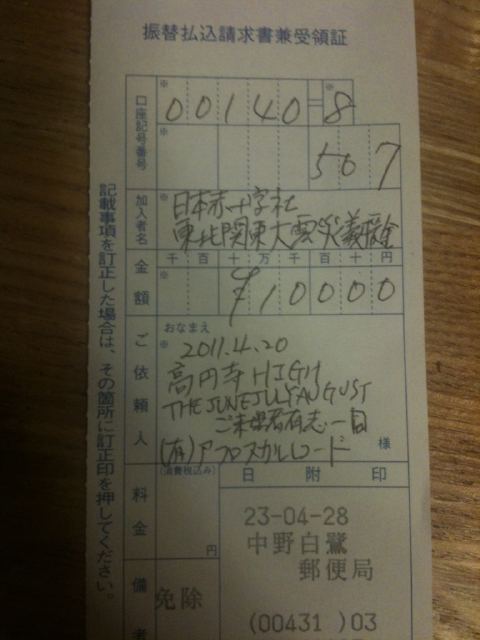 振替払込請求書兼受領証
口座記号番号
※ 00140 - ※ 8
※ 507
加入者名
※ 日本赤十字社
東北関東大震災義援金
金額
千 百 十 万 千 百 十 円
※ ¥10000
ご依頼人
おなまえ
※ 2011.4.20
高円寺HIGH
THE JUNEJULYAUGUST
ご来場者有志一同
(有)アフロスカルレコード
様
料金
(消費税込み)
円
日 附 印
23-04-28
中野白鷺
郵便局
(00431 )03
備考
免除
記載事項を訂正した場合は、その箇所に訂正印を押してください。